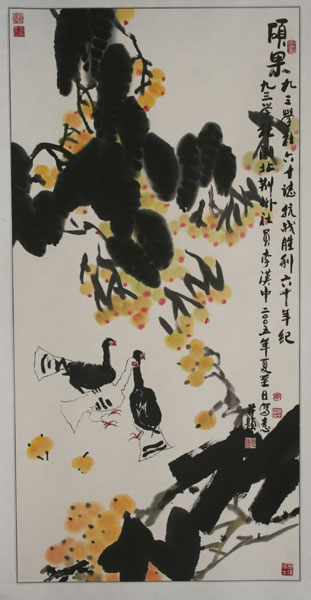 硕果
九三学社六十诞抗战胜利六十年纪
九三学社湖北荆州社员李汉申二〇〇五年夏至日写意